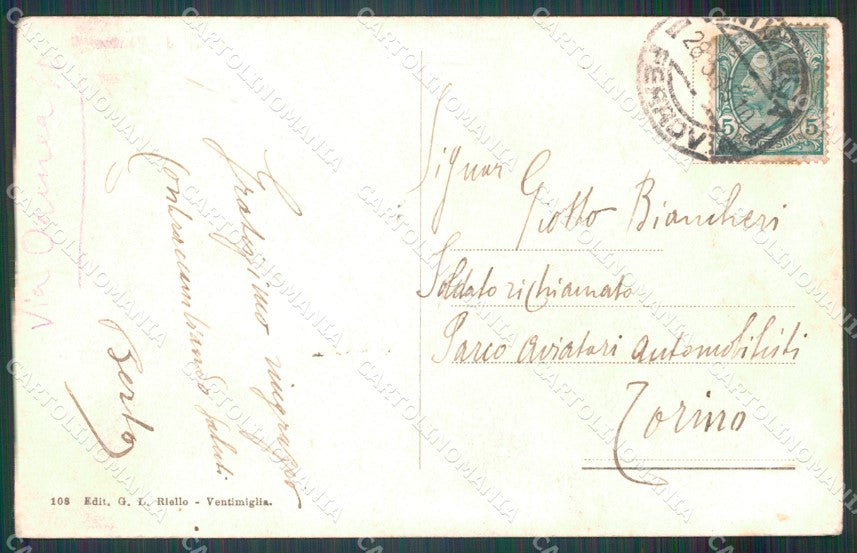 Via Ormea
Gratissimo ringrazio
Contraccambiando Saluti
Berto
Signor
Giotto Biancheri
Soldato richiamato
Parco aviatori automobilisti
Torino
VENTIMIGLIA
28
5 5
108 Edit. G. L. Riello - Ventimiglia.
CARTOLINOMANIA